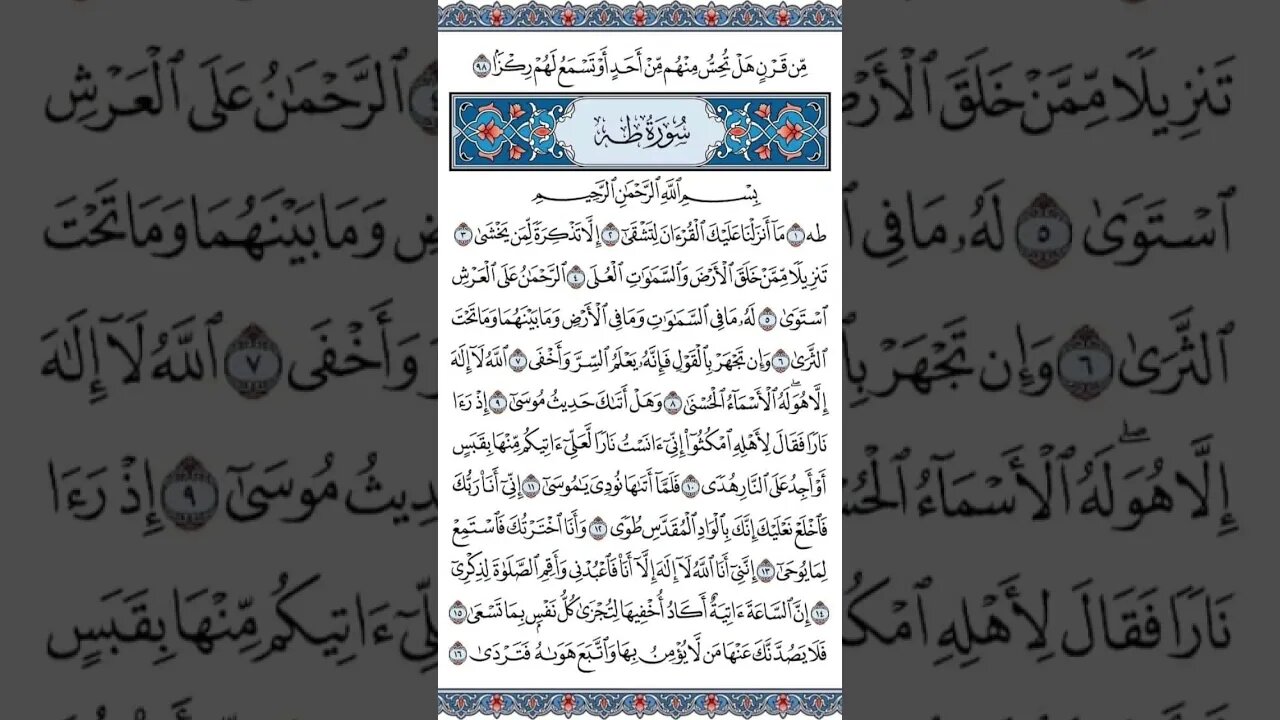 مِّن قَرْنٍ هَلْ تُحِسُّ مِنْهُم مِّنْ أَحَدٍ أَوْ تَسْمَعُ لَهُمْ رِكْزًۢا ٩٨
سُورَةُ طه
بِسْمِ ٱللَّهِ ٱلرَّحْمَٰنِ ٱلرَّحِيمِ
طه ١ مَآ أَنزَلْنَا عَلَيْكَ ٱلْقُرْءَانَ لِتَشْقَىٰٓ ٢ إِلَّا تَذْكِرَةً لِّمَن يَخْشَىٰ ٣
تَنزِيلًا مِّمَّنْ خَلَقَ ٱلْأَرْضَ وَٱلسَّمَٰوَٰتِ ٱلْعُلَى ٤ ٱلرَّحْمَٰنُ عَلَى ٱلْعَرْشِ
ٱسْتَوَىٰ ٥ لَهُۥ مَا فِى ٱلسَّمَٰوَٰتِ وَمَا فِى ٱلْأَرْضِ وَمَا بَيْنَهُمَا وَمَا تَحْتَ
ٱلثَّرَىٰ ٦ وَإِن تَجْهَرْ بِٱلْقَوْلِ فَإِنَّهُۥ يَعْلَمُ ٱلسِّرَّ وَأَخْفَى ٧ ٱللَّهُ لَآ إِلَٰهَ
إِلَّا هُوَۖ لَهُ ٱلْأَسْمَآءُ ٱلْحُسْنَىٰ ٨ وَهَلْ أَتَىٰكَ حَدِيثُ مُوسَىٰٓ ٩ إِذْ رَءَا
نَارًا فَقَالَ لِأَهْلِهِ ٱمْكُثُوٓا۟ إِنِّىٓ ءَانَسْتُ نَارًا لَّعَلِّىٓ ءَاتِيكُم مِّنْهَا بِقَبَسٍ
أَوْ أَجِدُ عَلَى ٱلنَّارِ هُدًى ١٠ فَلَمَّآ أَتَىٰهَا نُودِىَ يَٰمُوسَىٰٓ ١١ إِنِّىٓ أَنَا۠ رَبُّكَ
فَٱخْلَعْ نَعْلَيْكَ إِنَّكَ بِٱلْوَادِ ٱلْمُقَدَّسِ طُوًى ١٢ وَأَنَا ٱخْتَرْتُكَ فَٱسْتَمِعْ
لِمَا يُوحَىٰٓ ١٣ إِنَّنِىٓ أَنَا ٱللَّهُ لَآ إِلَٰهَ إِلَّآ أَنَا۠ فَٱعْبُدْنِى وَأَقِمِ ٱلصَّلَوٰةَ لِذِكْرِىٓ
١٤ إِنَّ ٱلسَّاعَةَ ءَاتِيَةٌ أَكَادُ أُخْفِيهَا لِتُجْزَىٰ كُلُّ نَفْسٍۭ بِمَا تَسْعَىٰ ١٥
فَلَا يَصُدَّنَّكَ عَنْهَا مَن لَّا يُؤْمِنُ بِهَا وَٱتَّبَعَ هَوَىٰهُ فَتَرْدَىٰ ١٦